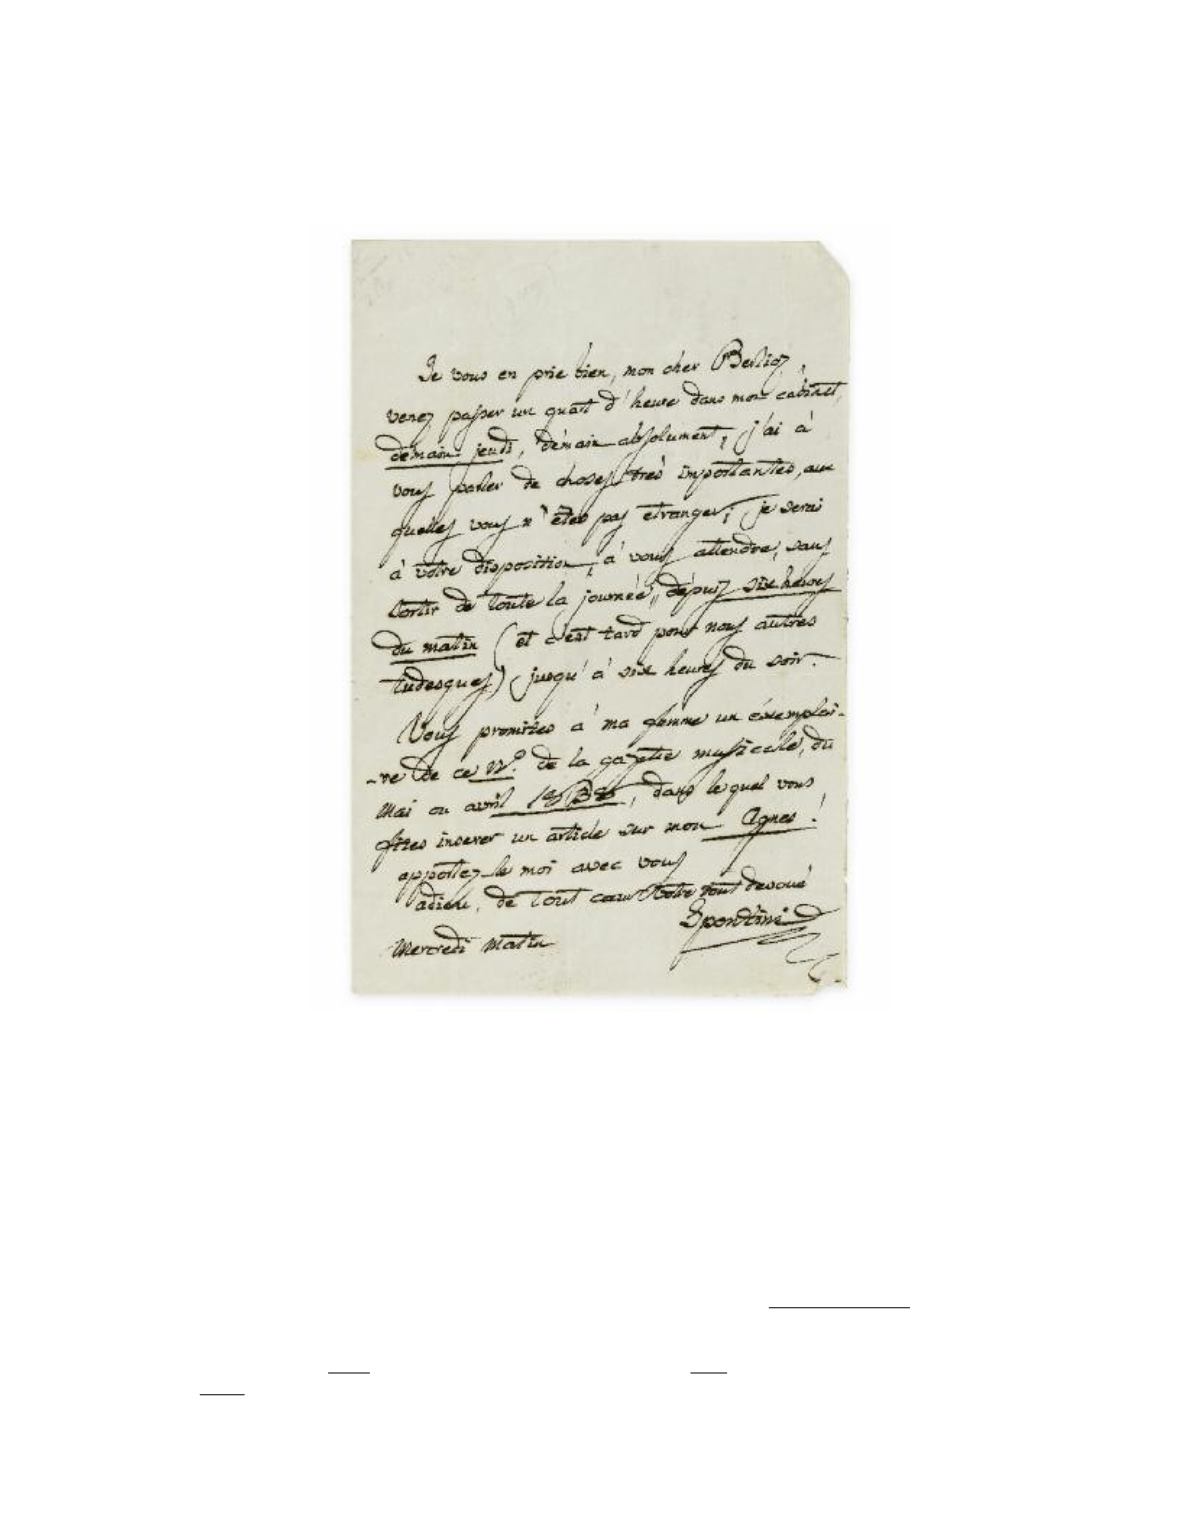 Je vous en prie bien, mon cher Berlioz,
venez passer un quart d'heure dans mon cabinet,
demain jeudi, demain absolument, j'ai à
vous parler de choses très importantes, aux
quelles vous n'êtes pas etranger; je serai
à votre disposition, à vous attendre, sans
sortir de toute la journée, dépuis six heures
du matin (et c'est tard pour nous autres
tudesques) jusqu'à six heures du soir.
Vous promites à ma femme un éxemplai-
-re de ce N.º de la gazette musicale, du
Mai ou avril 1838, dans le quel vous
fites inserer un article sur mon Agnes!
apportez-le moi avec vous
adieu, de tout cœur Votre tout devoué
Spontini
Mercredi matin